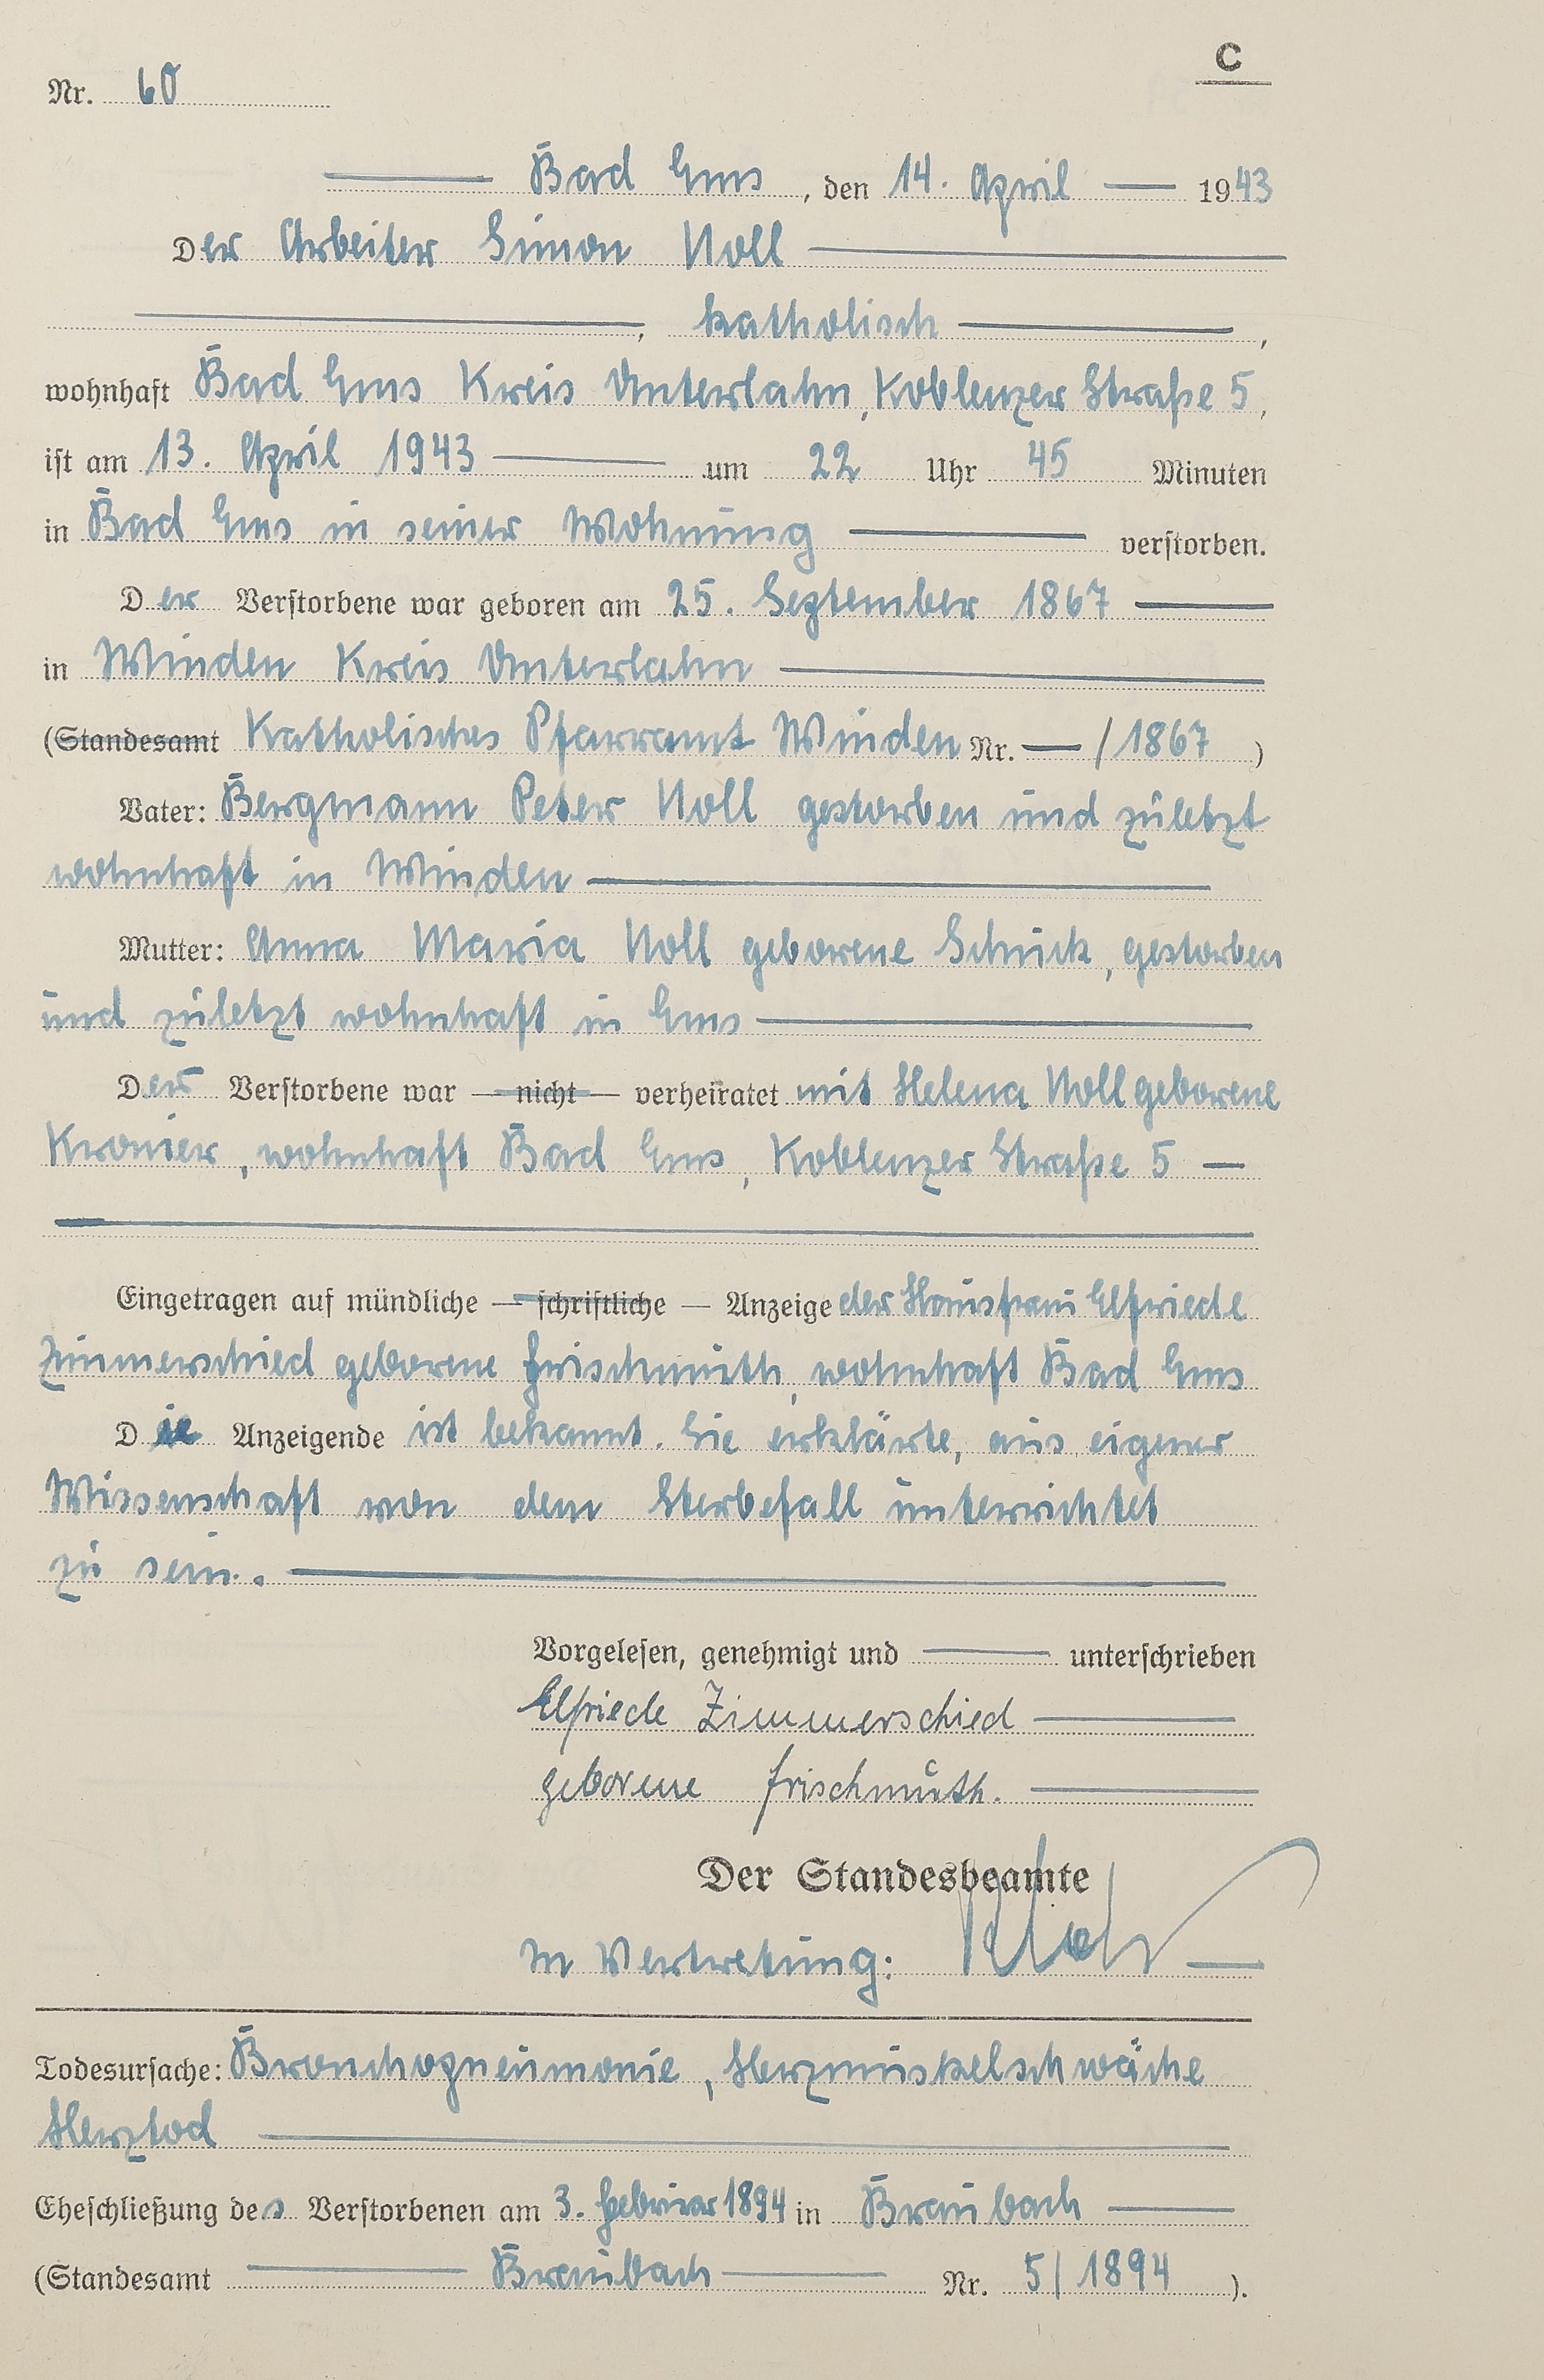 C
Nr. 60
Bad Ems, den 14. April 1943
Der Arbeiter Simon Noll
, katholisch,
wohnhaft Bad Ems Kreis Unterlahn, Koblenzer Straße 5,
ist am 13. April 1943 um 22 Uhr 45 Minuten
in Bad Ems in seiner Wohnung verstorben.
Der Verstorbene war geboren am 25. September 1867
in Winden Kreis Unterlahn
(Standesamt Katholisches Pfarramt Winden Nr. — / 1867)
Vater: Bergmann Peter Noll gestorben und zuletzt
wohnhaft in Winden
Mutter: Anna Maria Noll geborene Schuck, gestorben
und zuletzt wohnhaft in Ems
Der Verstorbene war — nicht — verheiratet mit Helena Noll geborene
Kronier, wohnhaft Bad Ems, Koblenzer Straße 5 —
Eingetragen auf mündliche — schriftliche — Anzeige der Hausfrau Elfriede
Zimmerschied geborene Frischmuth, wohnhaft Bad Ems
Die Anzeigende ist bekannt. Sie erklärte, aus eigener
Wissenschaft von dem Sterbefall unterrichtet
zu sein.
Vorgelesen, genehmigt und — unterschrieben
Elfriede Zimmerschied
geborene Frischmuth.
Der Standesbeamte
In Vertretung:
Todesursache: Bronchopneumonie, Herzmuskelschwäche
Herztod
Eheschließung des Verstorbenen am 3. Februar 1894 in Braubach
(Standesamt Braubach Nr. 5/1894).